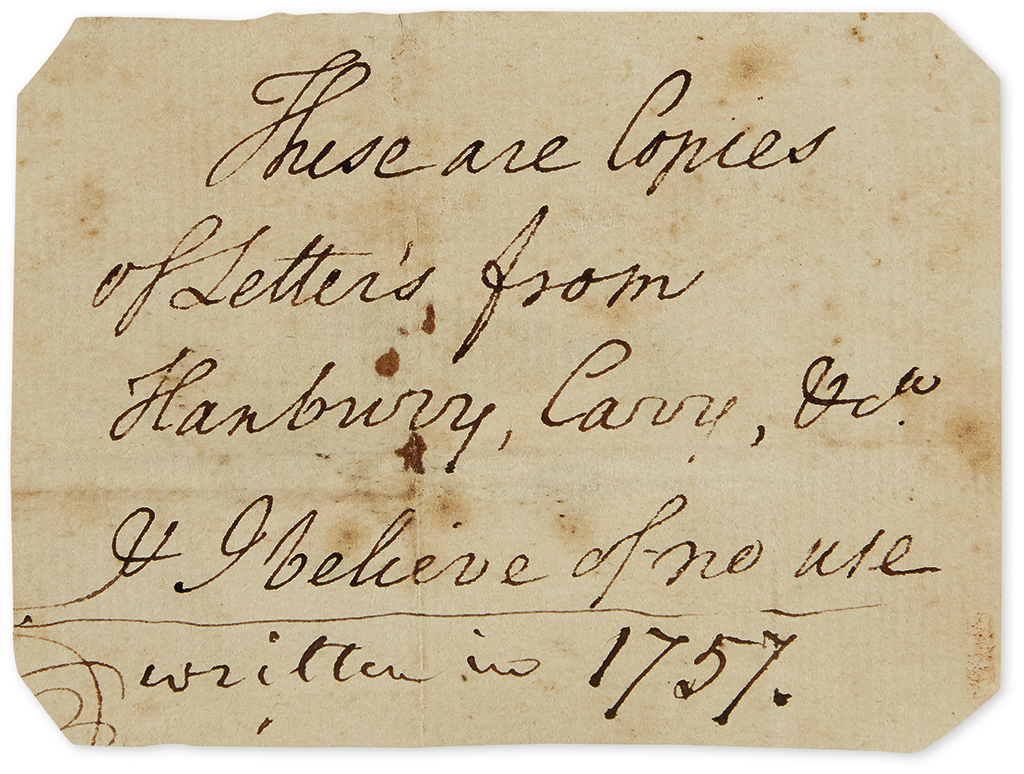 These are Copies
of Letter's from
Hanbury, Cary, &ca.
& I believe of no use
written in 1757.